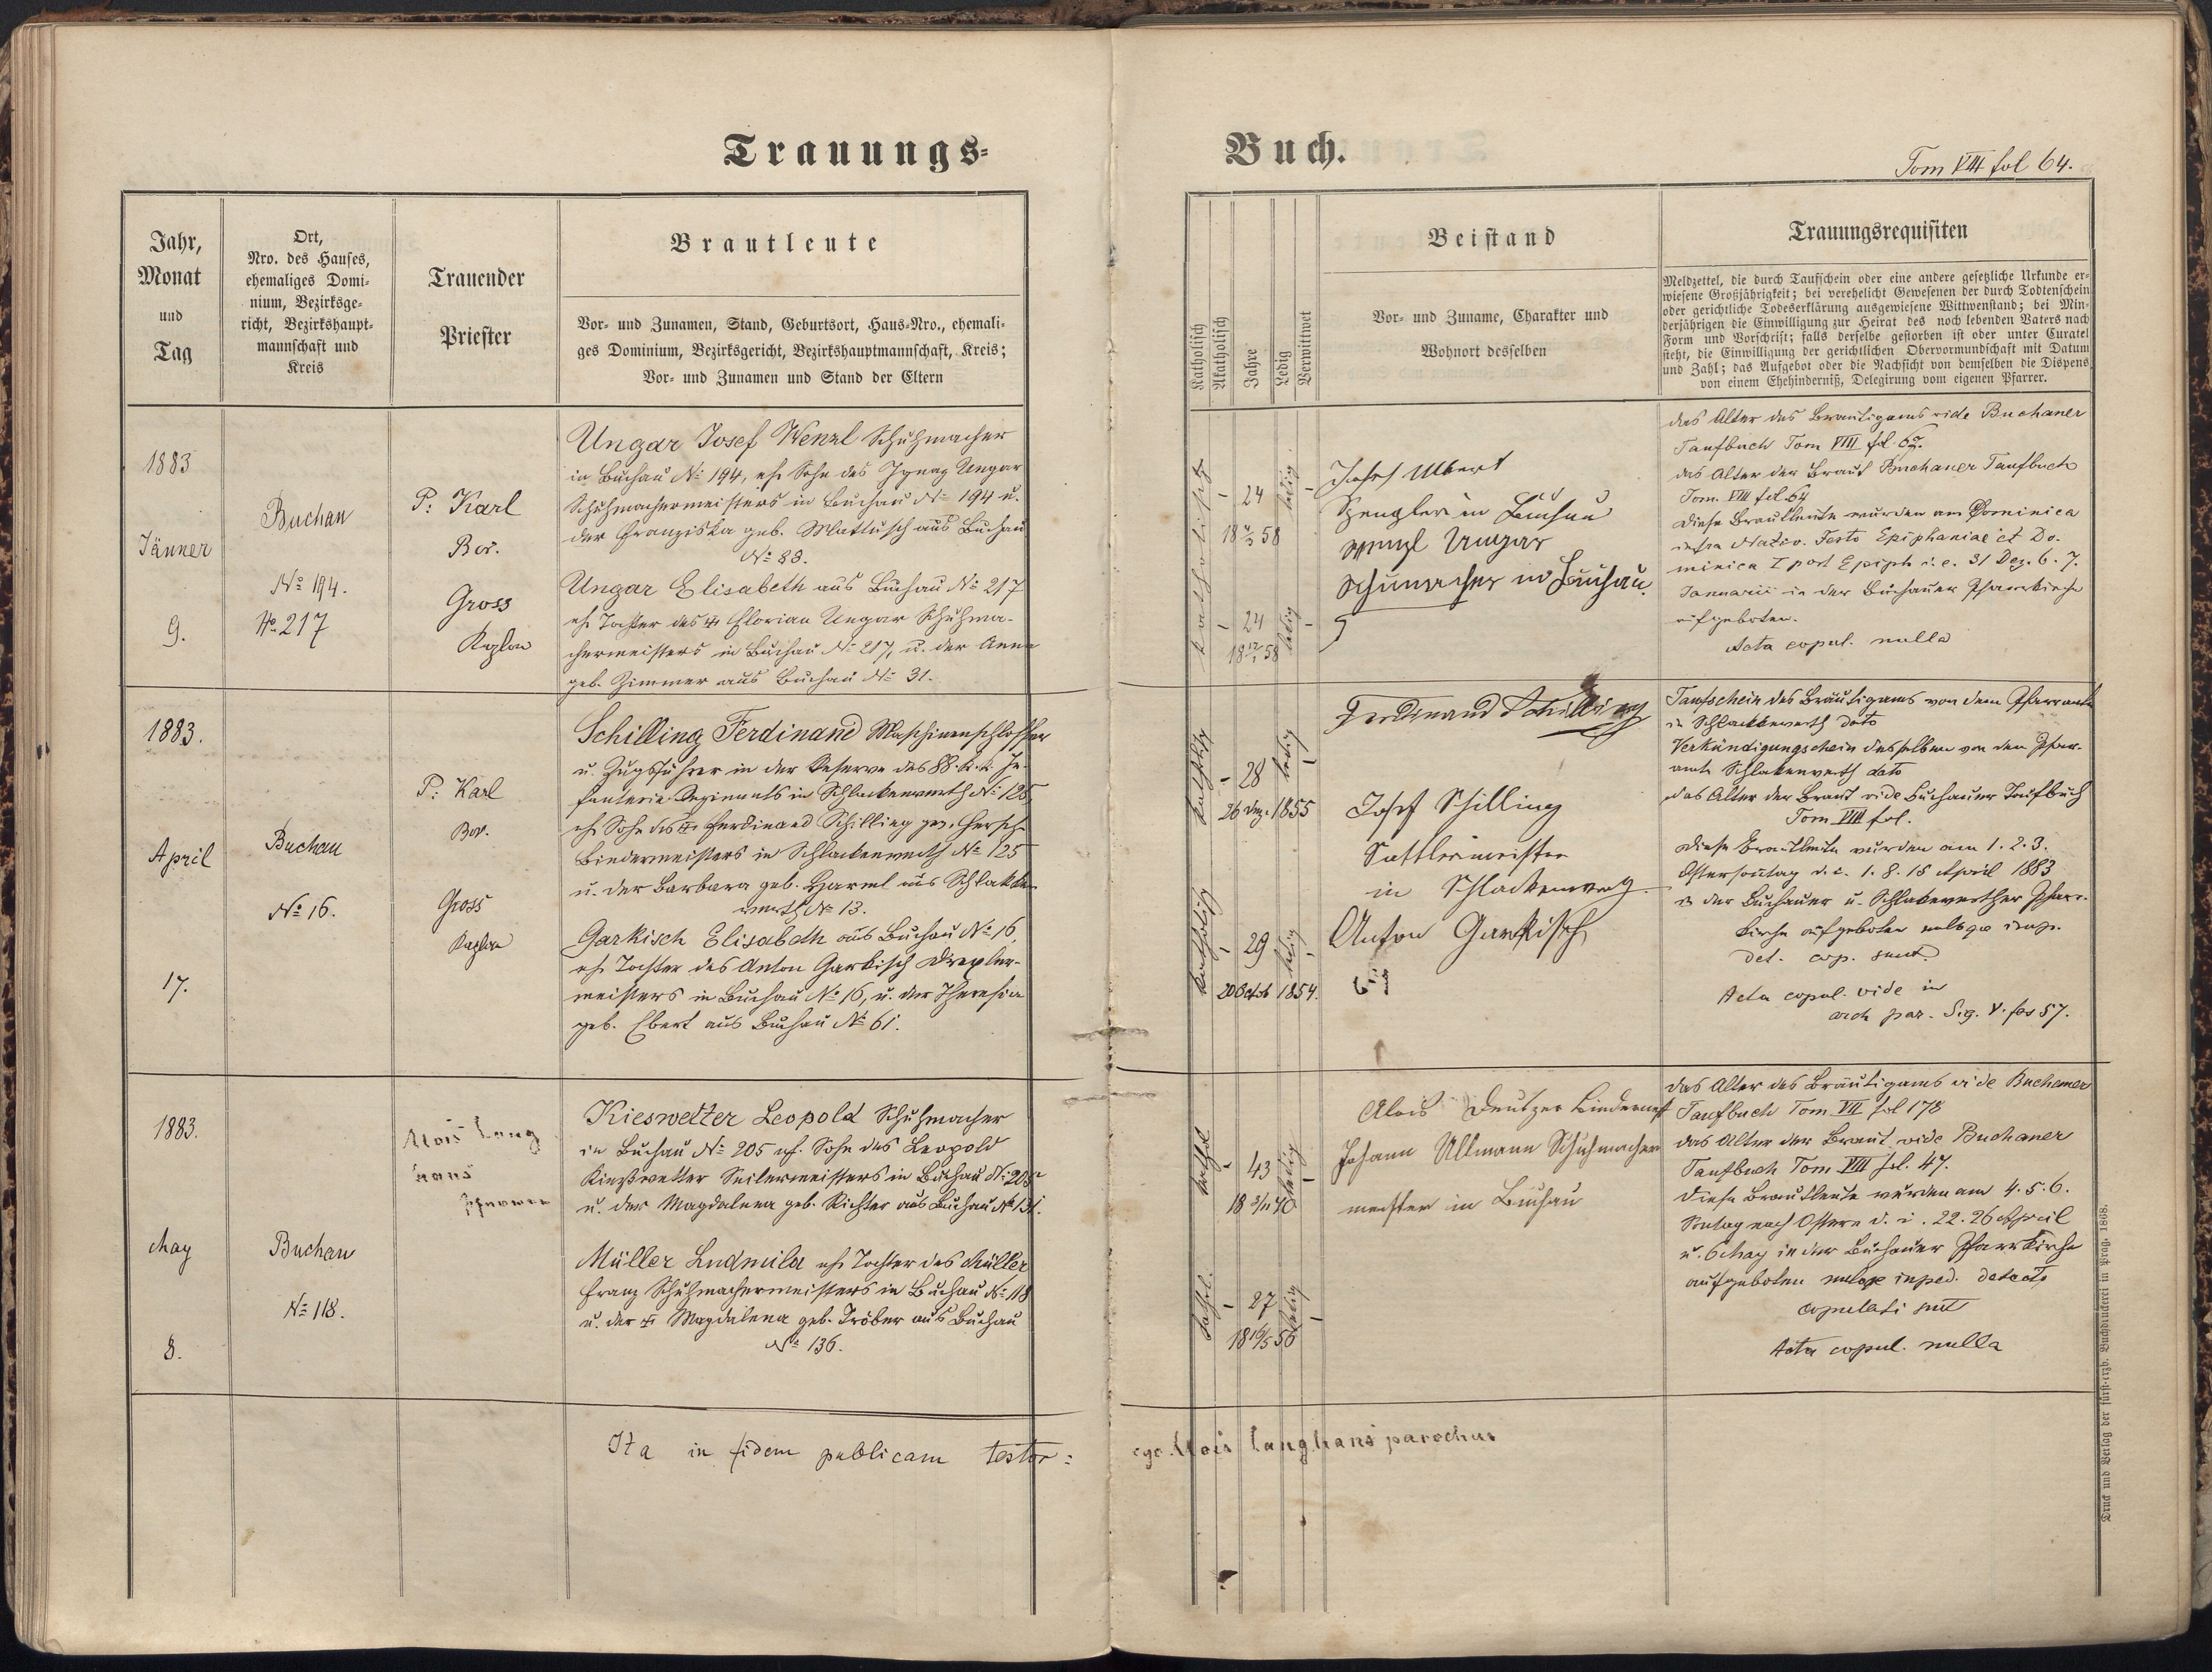 Trauungs-
Buch.
Tom VIII fol 64.
Jahr,
Monat
und
Tag
Ort,
Nro. des Hauses,
ehemaliges Domi-
nium, Bezirksge-
richt, Bezirkshaupt-
mannschaft und
Kreis
Trauender
Priester
Brautleute
Vor- und Zunamen, Stand, Geburtsort, Haus-Nro., ehemali-
ges Dominium, Bezirksgericht, Bezirkshauptmannschaft, Kreis;
Vor- und Zunamen und Stand der Eltern
Katholisch
Akatholisch
Jahre
Ledig
Verwittwet
Beistand
Vor- und Zuname, Charakter und
Wohnort desselben
Trauungsrequisiten
Meldzettel, die durch Taufschein oder eine andere gesetzliche Urkunde er-
wiesene Großjährigkeit; bei verehelicht Gewesenen der durch Todtenschein
oder gerichtliche Todeserklärung ausgewiesene Wittwenstand; bei Min-
derjährigen die Einwilligung zur Heirat des noch lebenden Vaters nach
Form und Vorschrift; falls derselbe gestorben ist oder unter Curatel
steht, die Einwilligung der gerichtlichen Obervormundschaft mit Datum
und Zahl; das Aufgebot oder die Nachsicht von demselben die Dispens
von einem Ehehinderniß, Delegirung vom eigenen Pfarrer.
1883
Jänner
9.
Buchau
No 194.
No 217
P: Karl
Bor.
Gross
Kaplan
Ungar Josef Wenzl Schuhmacher
in Buchau No 194, ehl Sohn des Ignaz Ungar
Schuhmachermeisters in Buchau No 194 u.
der Franziska geb. Mattusch aus Buchau
No 88.
Ungar Elisabeth aus Buchau No 217
ehl Tochter des Florian Ungar Schuhma-
chermeisters in Buchau No 217, u. der Anna
geb. Zimmer aus Buchau No 31.
katholisch
24
ledig
24
ledig
Josef Albert
Spengler in Buchau
Wenzl Ungar
Schumacher in Buchau.
das Alter des Bräutigams vide Buchauer
Taufbuch Tom VIII fol.
das Alter der Braut Buchauer Taufbuch
Tom. VIII fol. 64
Diese Brautleute wurden am Dominica
infra Nativ. Festo Epiphaniae et Do-
minica I post Epiph i. e. 31 Dez. 6. 7.
Januarii in der Buchauer Pfarrkirche
aufgeboten.
Acta copul. nulla
1883.
April
17.
Buchau
No 16.
P: Karl
Bor.
Gross
Kaplan
Schilling Ferdinand Maschinenschlosser
u. Zugsführer in der Reserve des 88. k. k. In-
fanterie Regiments in Schlackenwerth No 125,
ehl Sohn des Ferdinand Schilling
Bindermeisters in Schlackenwerth No 125
u. der Barbara geb. Harml aus Schlakken-
werth No 13.
Garkisch Elisabeth aus Buchau No 16,
ehl Tochter des Anton Garkisch Drexler-
meisters in Buchau No 16, u. der Theresia
geb. Ebert aus Buchau No 61.
katholisch
28
ledig
26 Dez. 1855
katholisch
29
ledig
20 Octob 1854.
Ferdinand Schilling
Josef Schilling
Sattlermeister
in Schlackenwerth
Anton Garkisch
Taufschein des Bräutigams von dem Pfarramte
in Schlackenwerth dato
Verkündigungschein desselben von dem Pfarr-
amte Schlakenwerth dato
das Alter der Braut vide Buchauer Taufbuch
Tom VIII fol.
Diese Brautleute wurden am 1. 2. 3.
Ostersontag d. i. 1. 8. 15 April 1883
in der Buchauer u. Schlakenwerther Pfarr-
kirche aufgeboten nulloque imp.
det. cop. sunt.
Acta copul. vide in
arch par. Sig. V. fas 57.
1883.
May
8.
Buchau
No 118.
Alois Lang
hans
Pfarrer
Kieswetter Leopold Schuhmacher
in Buchau No 205 ehl. Sohn des Leopold
Kieswetter Seilermeisters in Buchau No 205
u. der Magdalena geb. Richter aus Buchau No 131.
Müller Ludmila ehl Tochter des Müller
Franz Schuhmachermeisters in Buchau No 118
u. der Magdalena geb. Tröber aus Buchau
No 136.
kathol
43
ledig
18 3/11 40
kathol.
27
ledig
18 16/5 56
Alois Deutzer Bindermst
Johann Ullmann Schuhmacher
meister in Buchau
das Alter des Bräutigams vide Buchauer
Taufbuch Tom VII fol 178
das Alter der Braut vide Buchauer
Taufbuch Tom VIII fol. 47.
Diese Brautleute wurden am 4. 5. 6.
Sontag nach Ostern d. i. 22. 26 April
u. 6 May in der Buchauer Pfarrkirche
aufgeboten nuloque imped. detecto
copulati sunt
Acta copul. nulla
Ita in fidem publicam testor:
ego Alois Langhans parochus
Druck und Verlag der fürst-erzb. Buchdruckerei in Prag. 1868.